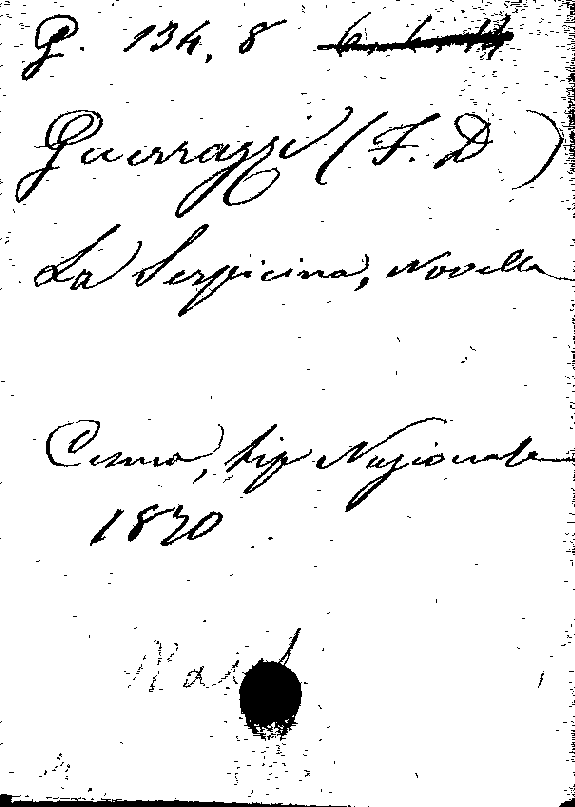 G. 134, 8
Guerrazzi (F. D)
La Serpicina, Novella
Cesena, tip Nazionale
1870